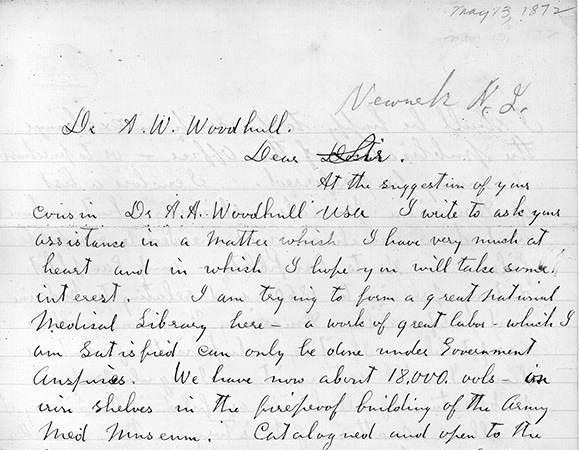 May 13, 1872
Newark N. J.
Dr A. W. Woodhull.
Dear Sir.
At the suggestion of your
cousin Dr A. A. Woodhull USA I write to ask your
assistance in a matter which I have very much at
heart and in which I hope you will take some
interest. I am trying to form a great National
Medical Library here – a work of great labor – which I
am satisfied can only be done under Government
Auspices. We have now about 18,000. vols – in
iron shelves in the fireproof building of the Army
Med Museum. Catalogued and open to the